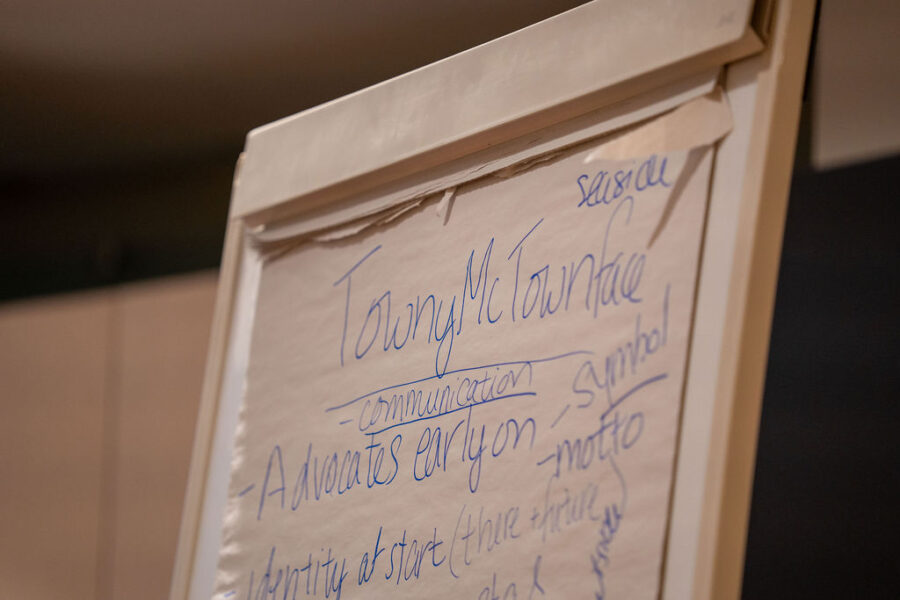 seaside
TownyMcTownface
- communication
- symbol
- Advocates early on
- motto
Identity at start (there + future)